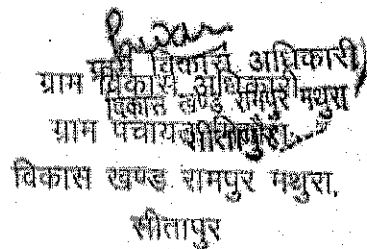 ग्राम विकास अधिकारी
ग्राम विकास अधिकारी
विकास खण्ड रामपुर मथुरा
ग्राम पंचायत
सीतापुर
विकास खण्ड रामपुर मथुरा,
सीतापुर